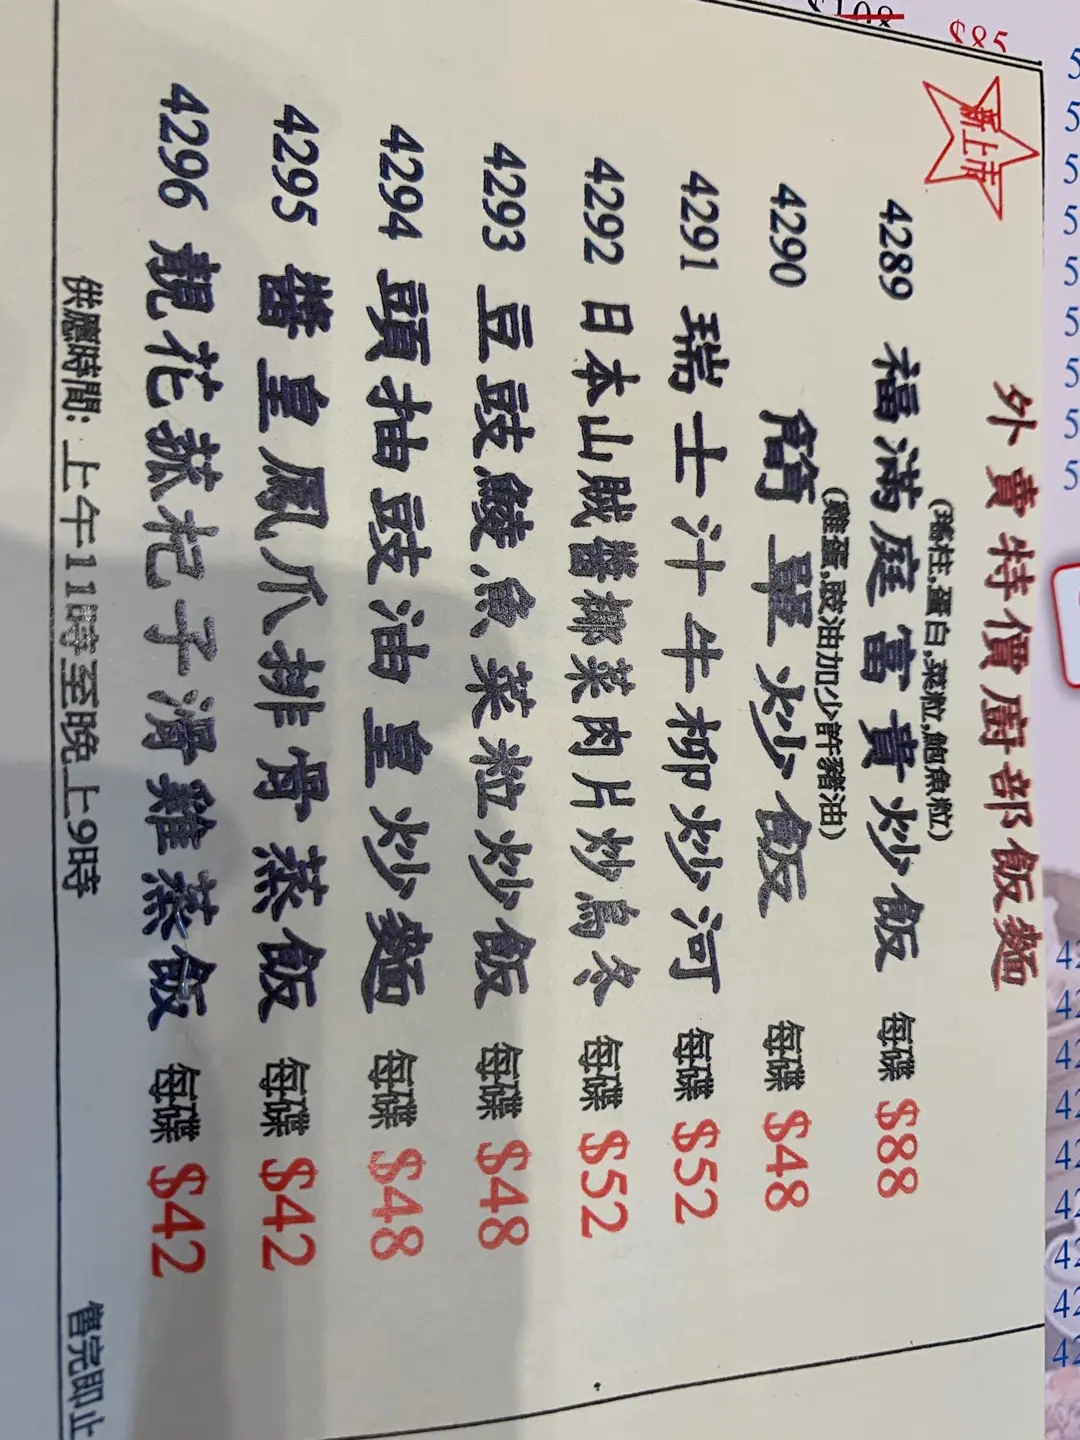 $108
$85
新上市
外賣特價廚部飯麵
(瑤柱,蛋白,菜粒,鮑魚粒)
4289 福滿庭富貴炒飯 每碟 $88
(雞蛋,豉油加少許豬油)
4290 簡單炒飯 每碟 $48
4291 瑞士汁牛柳炒河 每碟 $52
4292 日本山賊醬椰菜肉片炒烏冬 每碟 $52
4293 豆豉鯪魚菜粒炒飯 每碟 $48
4294 頭抽豉油皇炒麵 每碟 $48
4295 醬皇鳳爪排骨蒸飯 每碟 $42
4296 靚花菇杞子滑雞蒸飯 每碟 $42
供應時間: 上午11時至晚上9時
售完即止